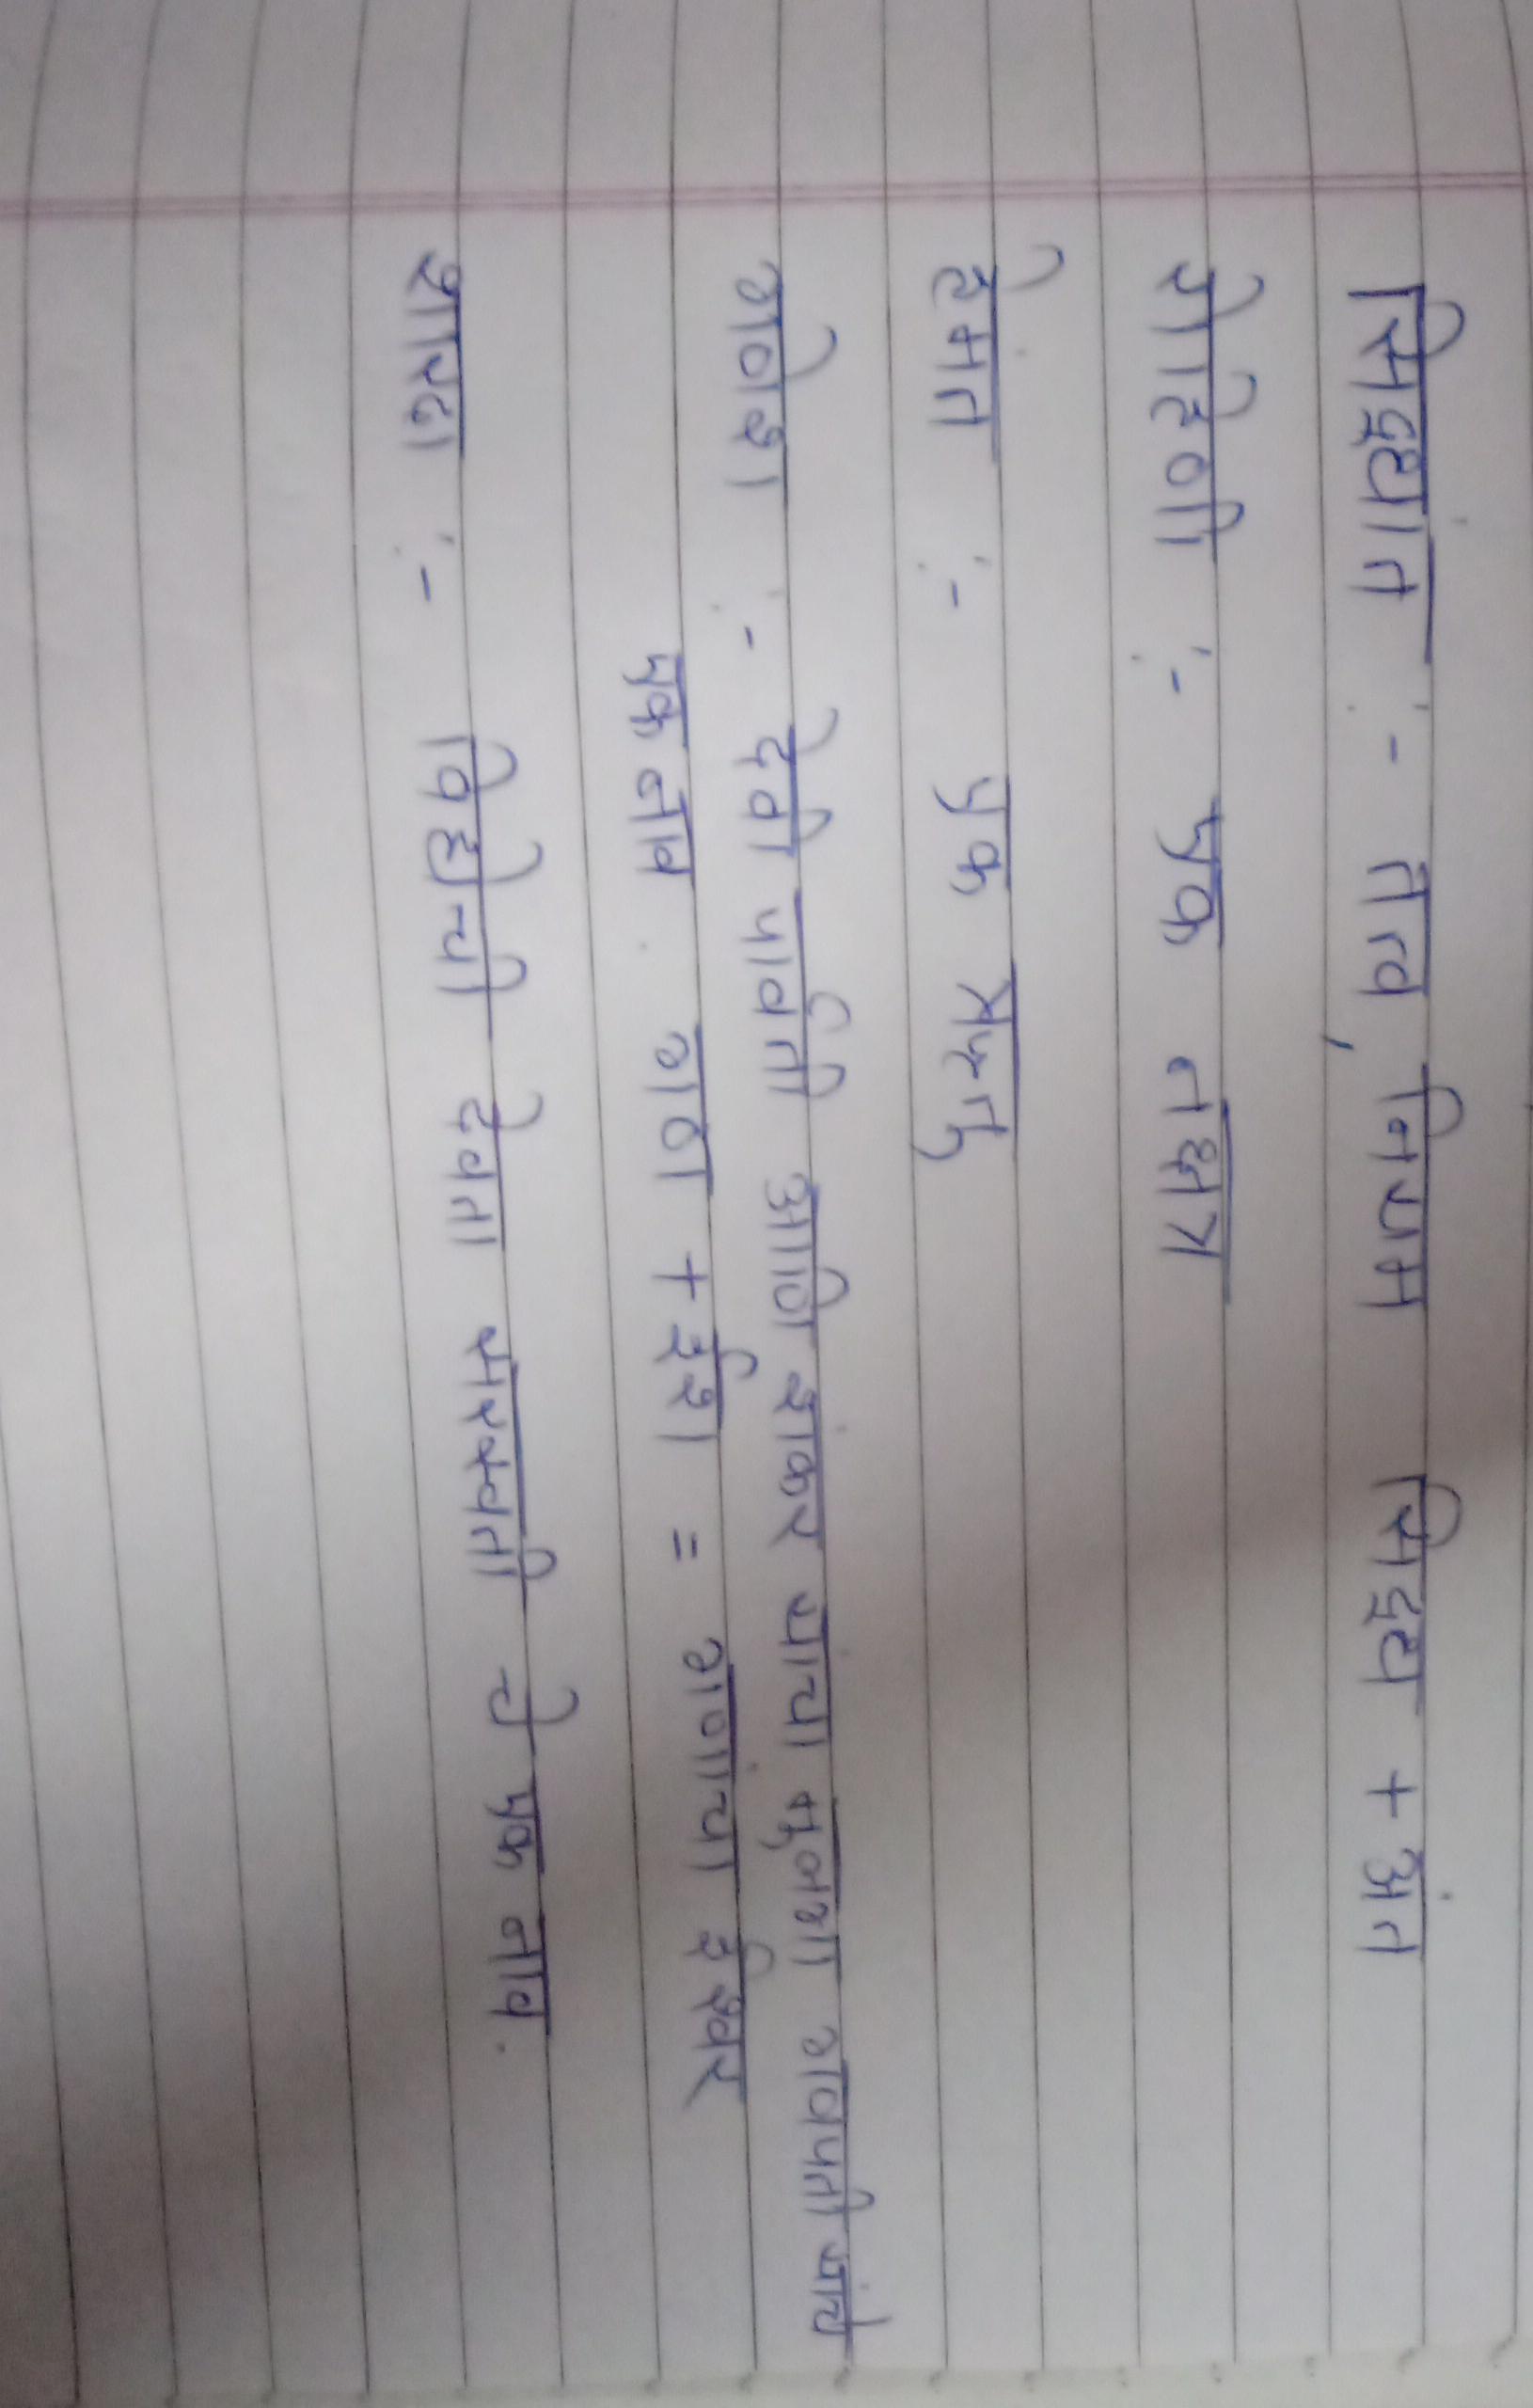 सिद्धांत :- तत्व, नियम सिद्ध + अंत
रोहिणी :- एक नक्षत्र
हेमंत :- एक ऋतू
गणेश :- देवी पार्वती आणि शंकर यांचा मुलगा गणपती यांचे
एक नाव . गण + ईश = गणांचा ईश्वर
शारदा :- विद्येची देवता सरस्वती चे एक नाव.